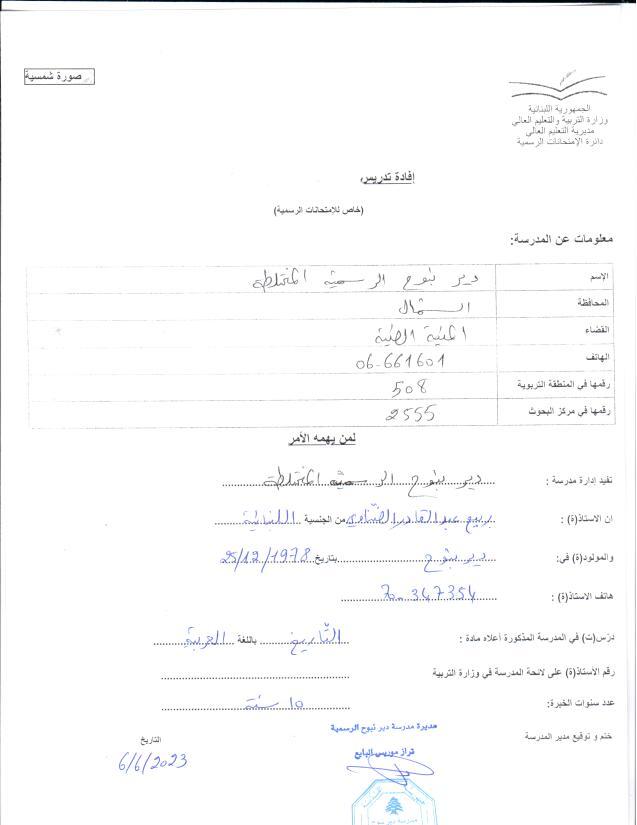 صورة شمسية
الجمهورية اللبنانية
وزارة التربية والتعليم العالي
مديرية التعليم العالي
دائرة الإمتحانات الرسمية
إفادة تدريس
(خاص للإمتحانات الرسمية)
معلومات عن المدرسة:
الإسم دير نبوح الرسمية المختلطة
المحافظة الشمال
القضاء المنية الضنية
الهاتف 06-661601
رقمها في المنطقة التربوية 508
رقمها في مركز البحوث 2555
لمن يهمه الأمر
تفيد إدارة مدرسة : دير نبوح الرسمية المختلطة
ان الاستاذ(ة) : ربيع عبد القادر الضناوي من الجنسية اللبنانية
والمولود(ة) في: دير نبوح بتاريخ 25/12/1978
هاتف الاستاذ(ة) : 70-347354
درّس(ت) في المدرسة المذكورة أعلاه مادة : التاريخ باللغة العربية
رقم الأستاذ(ة) على لائحة المدرسة في وزارة التربية
عدد سنوات الخبرة: 15 سنة
ختم و توقيع مدير المدرسة مديرة مدرسة دير نبوح الرسمية التاريخ
تراز موريس البايع 6/6/2023